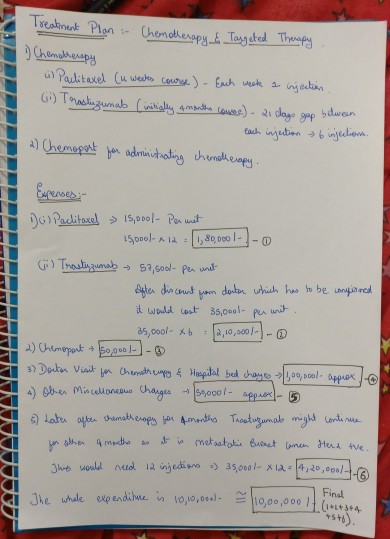 Treatment Plan :- Chemotherapy & Targeted Therapy.
1) Chemotherapy
(i) Paclitaxel (12 weeks course) - Each week 1 injection.
(ii) Trastuzumab (initially 4 months course) - 21 days gap between
each injection → 6 injections.
2) Chemoport for administrating chemotherapy.
Expenses :-
1) (i) Paclitaxel → 15,000/- Per unit
15,000/- x 12 = 1,80,000/- - ①
(ii) Trastuzumab → 57,500/- Per unit
After discount from doctor which has to be confirmed
it would cost 35,000/- per unit.
35,000/- x 6 = 2,10,000/- - ②
2) Chemoport → 50,000/- - ③
3) Doctor Visit for Chemotherapy & Hospital bed charges → 1,00,000/- approx - ④
4) Other Miscellaneous Charges → 50,000/- approx - ⑤
5) Later after chemotherapy for 4 months Trastuzumab might continue
for other 9 months as it is metastatic Breast cancer Her2 +ve.
Thus would need 12 injections => 35,000/- x 12 = 4,20,000/- - ⑥
The whole expenditure is 10,10,000/- ≅ 10,00,000/- Final
(1+2+3+4
+5+6).